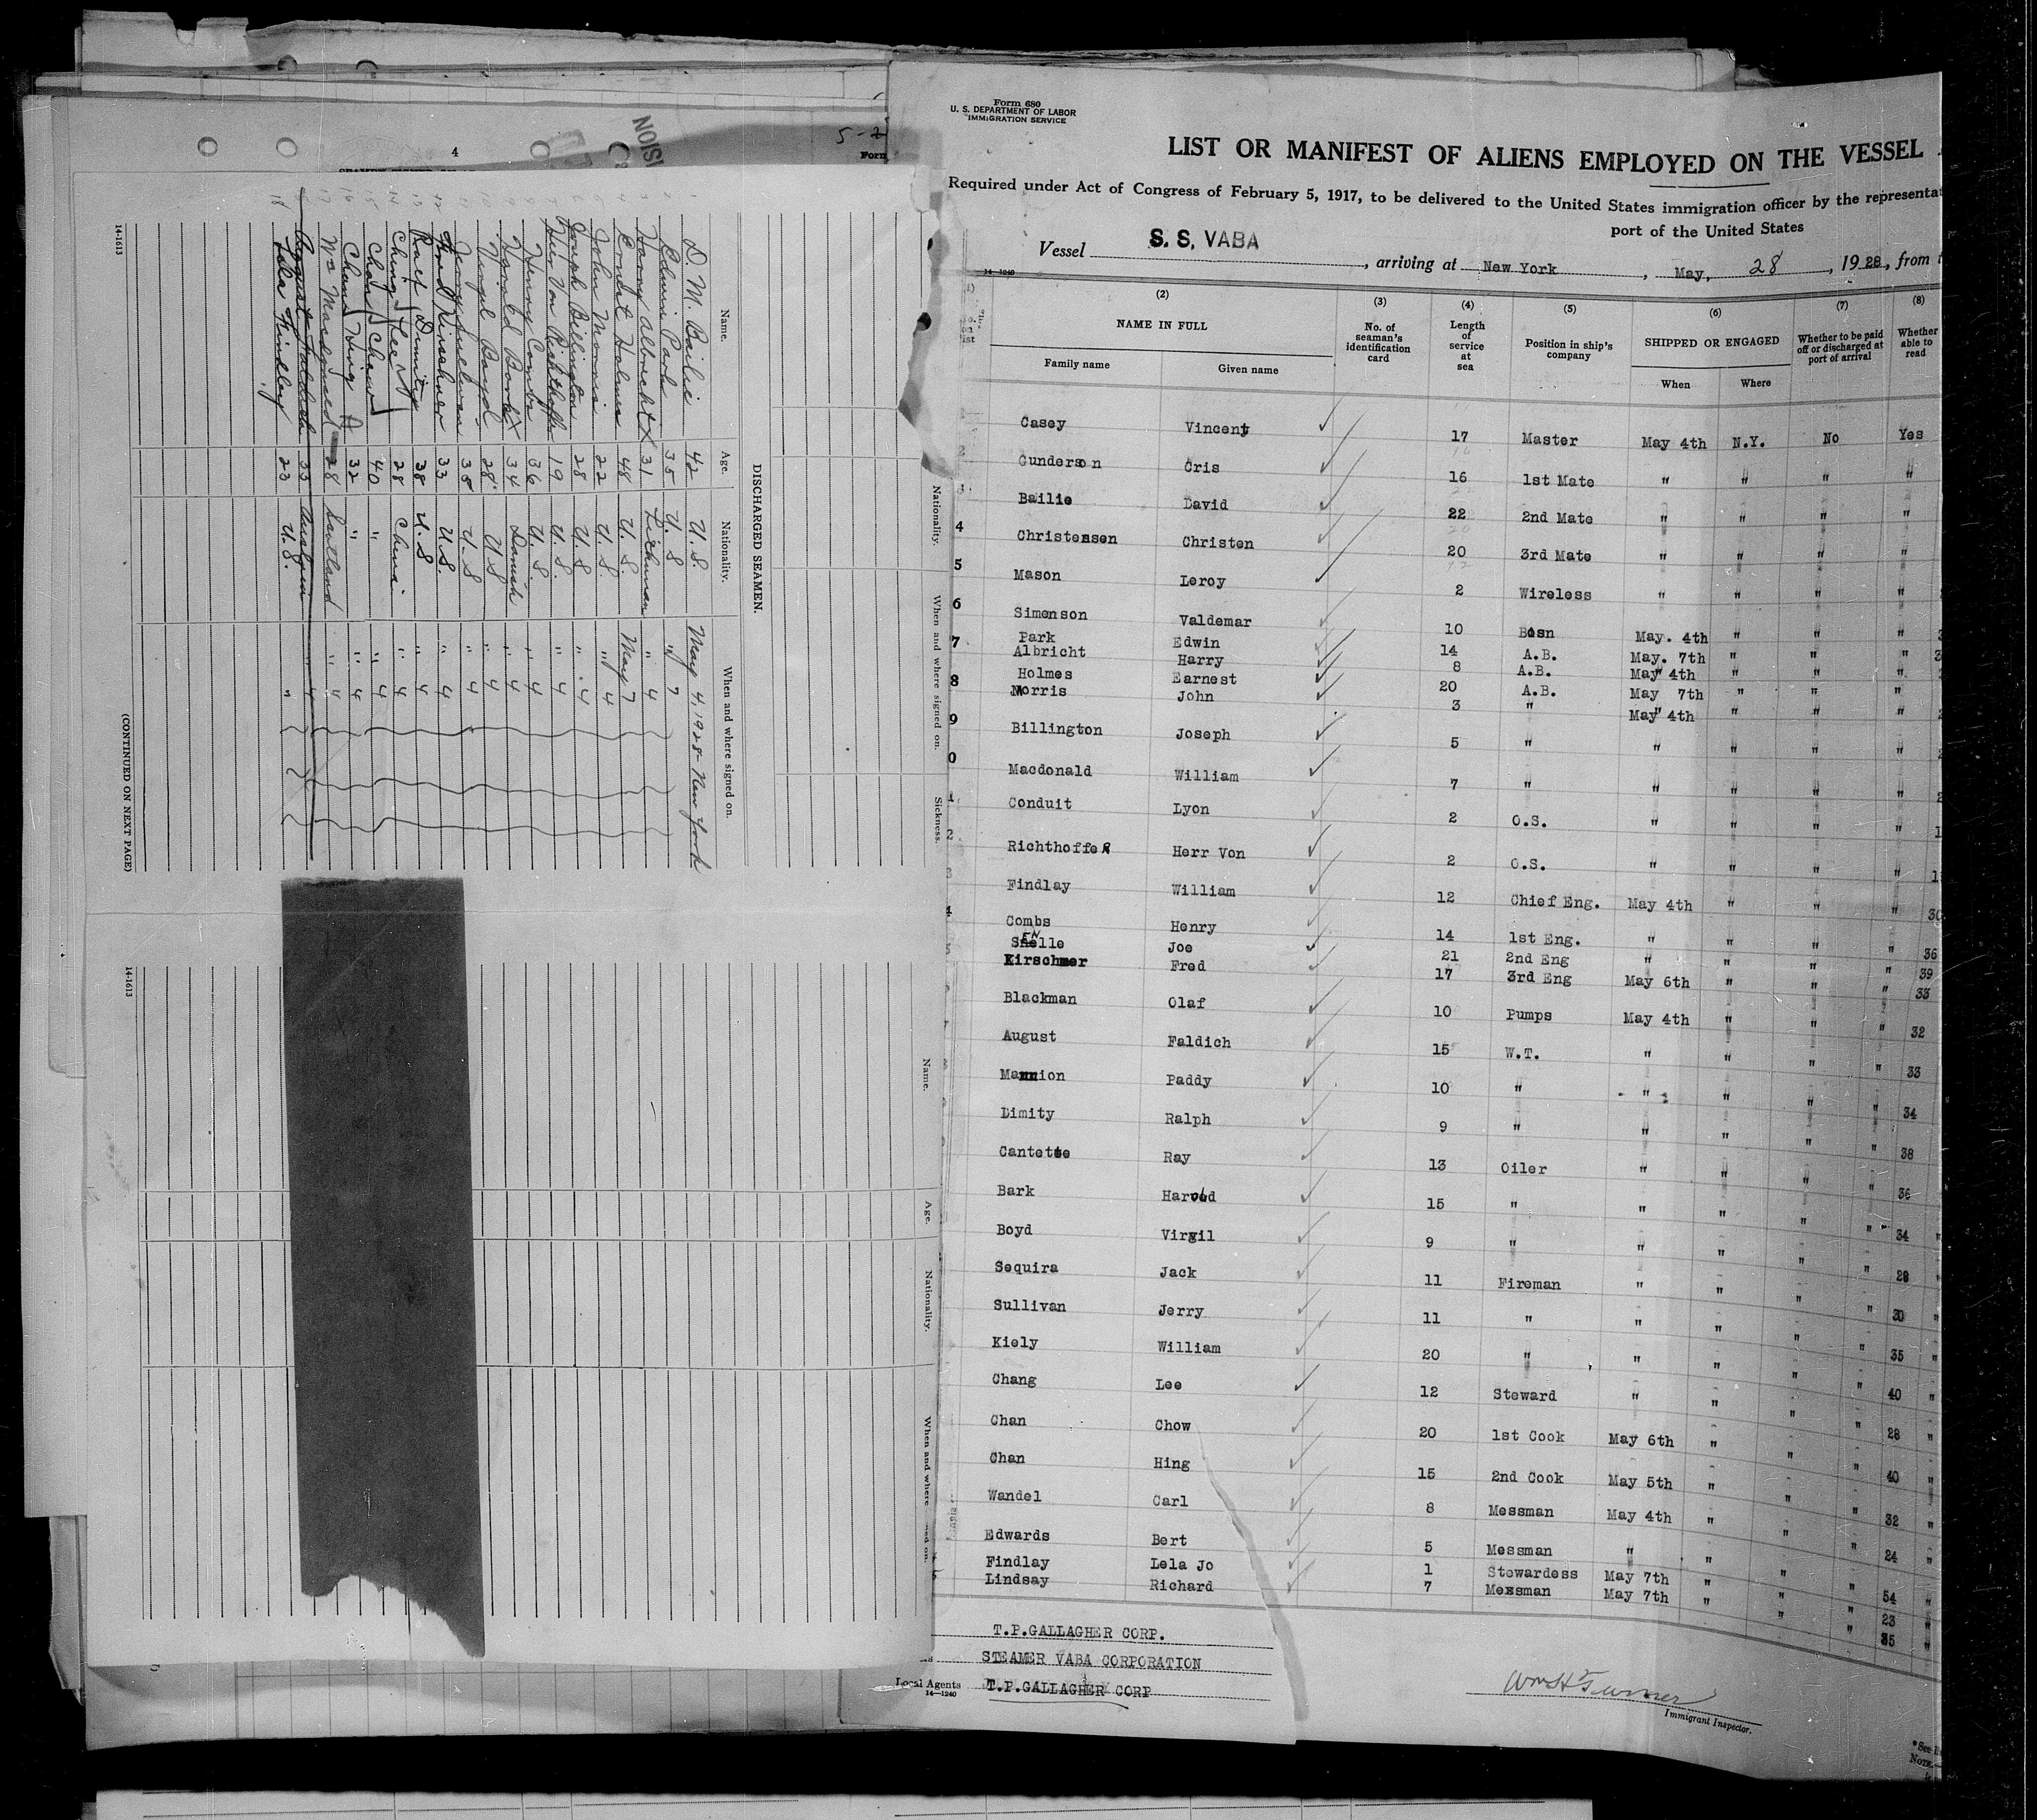 Form 680
U. S. DEPARTMENT OF LABOR
IMMIGRATION SERVICE
LIST OR MANIFEST OF ALIENS EMPLOYED ON THE VESSEL
Required under Act of Congress of February 5, 1917, to be delivered to the United States immigration officer by the
port of the United States
Vessel S. S. VABA, arriving at New York, May, 28, 1928, from
(2) (3) (4) (5) (6) (7) (8)
NAME IN FULL No. of seaman's identification card Length of service at sea Position in ship's company SHIPPED OR ENGAGED Whether to be paid off or discharged at port of arrival Whether able to read
Family name Given name When Where
Casey Vincent 17 Master May 4th N.Y. No Yes
Gunderson Cris 16 1st Mate " " " "
Bailie David 22 2nd Mate " " " "
4 Christensen Christen 20 3rd Mate " " " "
5 Mason Leroy 2 Wireless " " " "
6 Simenson Valdemar 10 Bosn May. 4th " " "
Park Edwin 14 A.B. May. 7th " " "
7 Albricht Harry 8 A.B. May 4th " " "
Holmes Earnest 20 A.B. May 7th " " "
8 Morris John 3 " May 4th " " "
9 Billington Joseph 5 " " " " "
0 Macdonald William 7 " " " " "
Conduit Lyon 2 O.S. " " " "
Richthoffer Herr Von 2 O.S. " " " "
Findlay William 12 Chief Eng. May 4th " " " 30
4 Combs Henry 14 1st Eng. " " " " 36
Snelle Joe 21 2nd Eng " " " " 39
Kirschner Fred 17 3rd Eng May 6th " " " 33
Blackman Olaf 10 Pumps May 4th " " " 32
August Faldich 15 W.T. " " " " 33
Mannion Paddy 10 " " " " " 34
Dimity Ralph 9 " " " " " 38
Cantette Ray 13 Oiler " " " " 36
Bark Harold 15 " " " " " 34
Boyd Virgil 9 " " " " " 28
Sequira Jack 11 Fireman " " " " 30
Sullivan Jerry 11 " " " " " 35
Kiely William 20 " " " " " 40
Chang Lee 12 Steward " " " " 28
Chan Chow 20 1st Cook May 6th " " " 40
Chan Hing 15 2nd Cook May 5th " " " 32
Wandel Carl 8 Messman May 4th " " " 24
Edwards Bert 5 Messman " " " " 54
Findlay Lela Jo 1 Stewardess May 7th " " " 23
Lindsay Richard 7 Messman May 7th " " " 35
T.P.GALLAGHER CORP.
STEAMER VABA CORPORATION
Local Agents T.P.GALLAGHER CORP
14—1240
Wm H Turner
Immigrant Inspector.
4
5-2
Form
DISCHARGED SEAMEN.
Name. Age. Nationality. When and where signed on.
D. M. Bailie 42 U.S. May 4, 1928 New York
Edwin Park 35 U.S " 7
Harry Albrecht X 31 " 4
Earnest Holmes 48 U.S. May 7
John Morris 22 U.S. " 4
Joseph Billington 28 U.S " 4
Herr Von Richthoffer 19 U.S. " 4
Henry Combs 36 U.S. " 4
Harold Bark X 34 Danish " 4
Virgil Boyd 28 U.S " 4
Jerry Sullivan 35 U.S " 4
Fred Kirschner 33 U.S. " 4
Ralf Dimity 38 U.S " 4
Ching Lee 28 China " 4
Chan Chow 40 " " 4
Chan Hing 32 " " 4
Wm Macdonald 28 Scotland " 4
August 33 " 4
Lela Findley 23 U.S. "
14-1613
(CONTINUED ON NEXT PAGE)
Nationality. When and where signed on. Sickness.
Name. Age. Nationality. When and where
14-1613